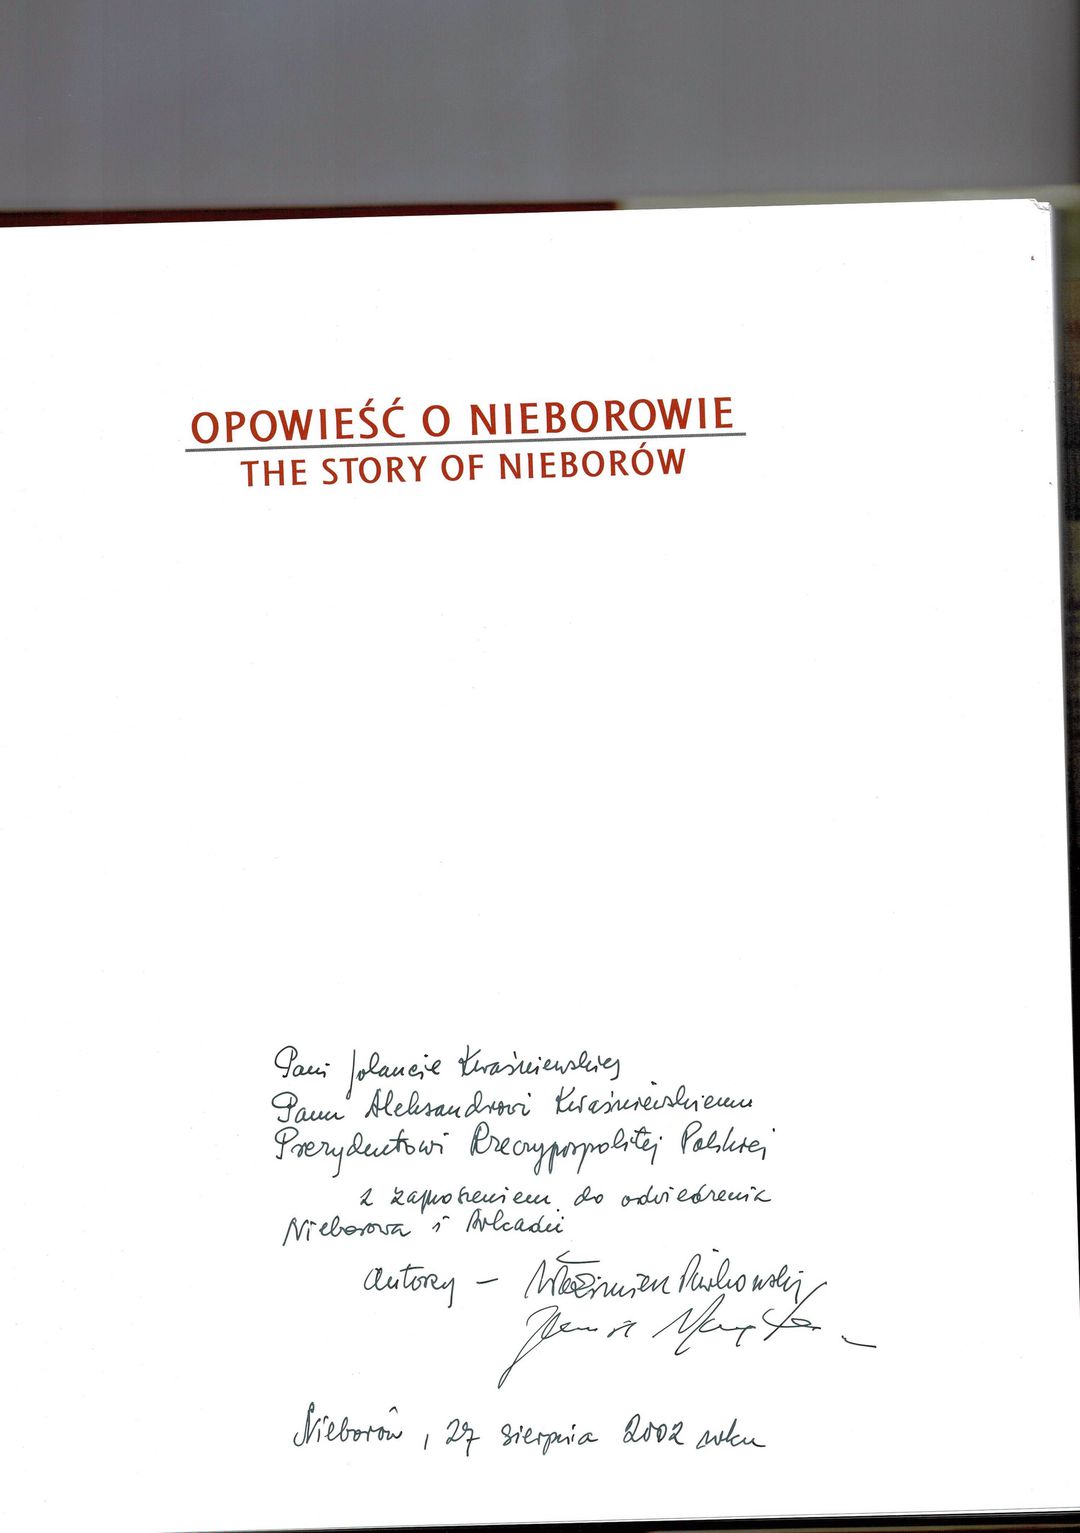 OPOWIEŚĆ O NIEBOROWIE
THE STORY OF NIEBORÓW
Pani Jolancie Kwaśniewskiej
Panu Aleksandrowi Kwaśniewskiemu
Prezydentowi Rzeczypospolitej Polskiej
z zaproszeniem do odwiedzenia
Nieborowa i Arkadii
autorzy – Włodzimierz Piwkowski
Nieborów, 27 sierpnia 2002 roku